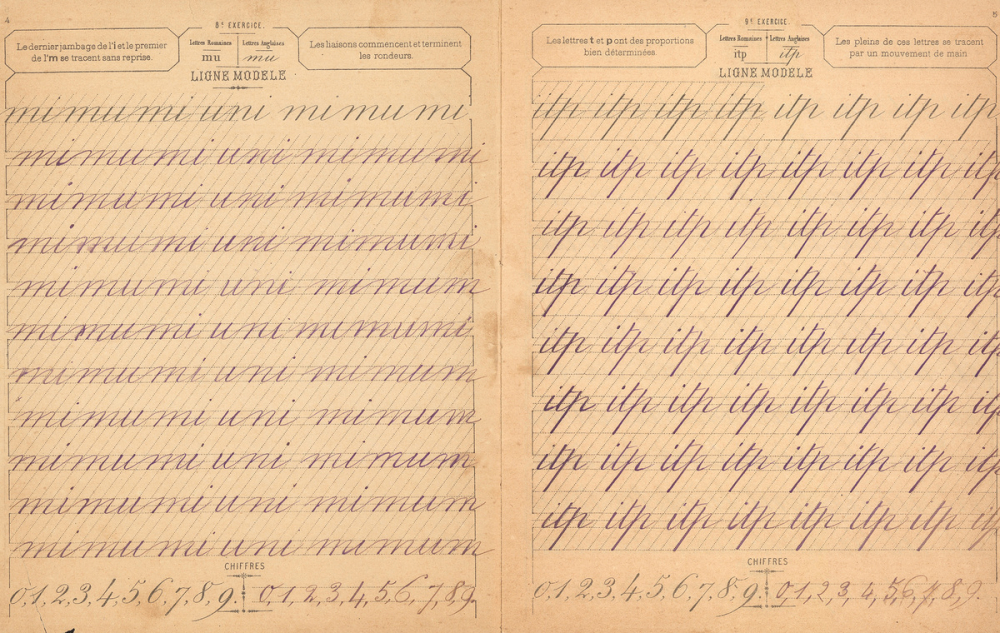 4
8e EXERCICE.
Le dernier jambage de l'i et le premier
de l'm se tracent sans reprise.
Lettres Romaines Lettres Anglaises
mu mu
Les liaisons commencent et terminent
les rondeurs.
LIGNE MODELE
mi mu mi uni mi mu mi
mi mu mi uni mi mu mi
mi mu mi uni mi mu mi
mi mu mi uni mi mu mi
mi mu mi uni mi mu m
mi mu mi uni mi mu mi
mi mu mi uni mi mu m
mi mu mi uni mi mu m
mi mu mi uni mi mu m
mi mu mi uni mi mu m
mi mu mi uni mi mu m
CHIFFRES
0,1,2,3,4,5,6,7,8,9. 0,1,2,3,4,5,6,7,8,9.
9e EXERCICE.
Les lettres t et p ont des proportions
bien déterminées
Lettres Romaines Lettres Anglaises
itp itp
Les pleins de ces lettres se tracent
par un mouvement de main
LIGNE MODELE
itp itp itp itp itp itp itp itp
itp itp itp itp itp itp itp itp
itp itp itp itp itp itp itp itp
itp itp itp itp itp itp itp itp
itp itp itp itp itp itp itp itp
itp itp itp itp itp itp itp itp
itp itp itp itp itp itp itp itp
itp itp itp itp itp itp itp itp
CHIFFRES
0,1,2,3,4,5,6,7,8,9. 0,1,2,3,4,5,6,7,8,9.